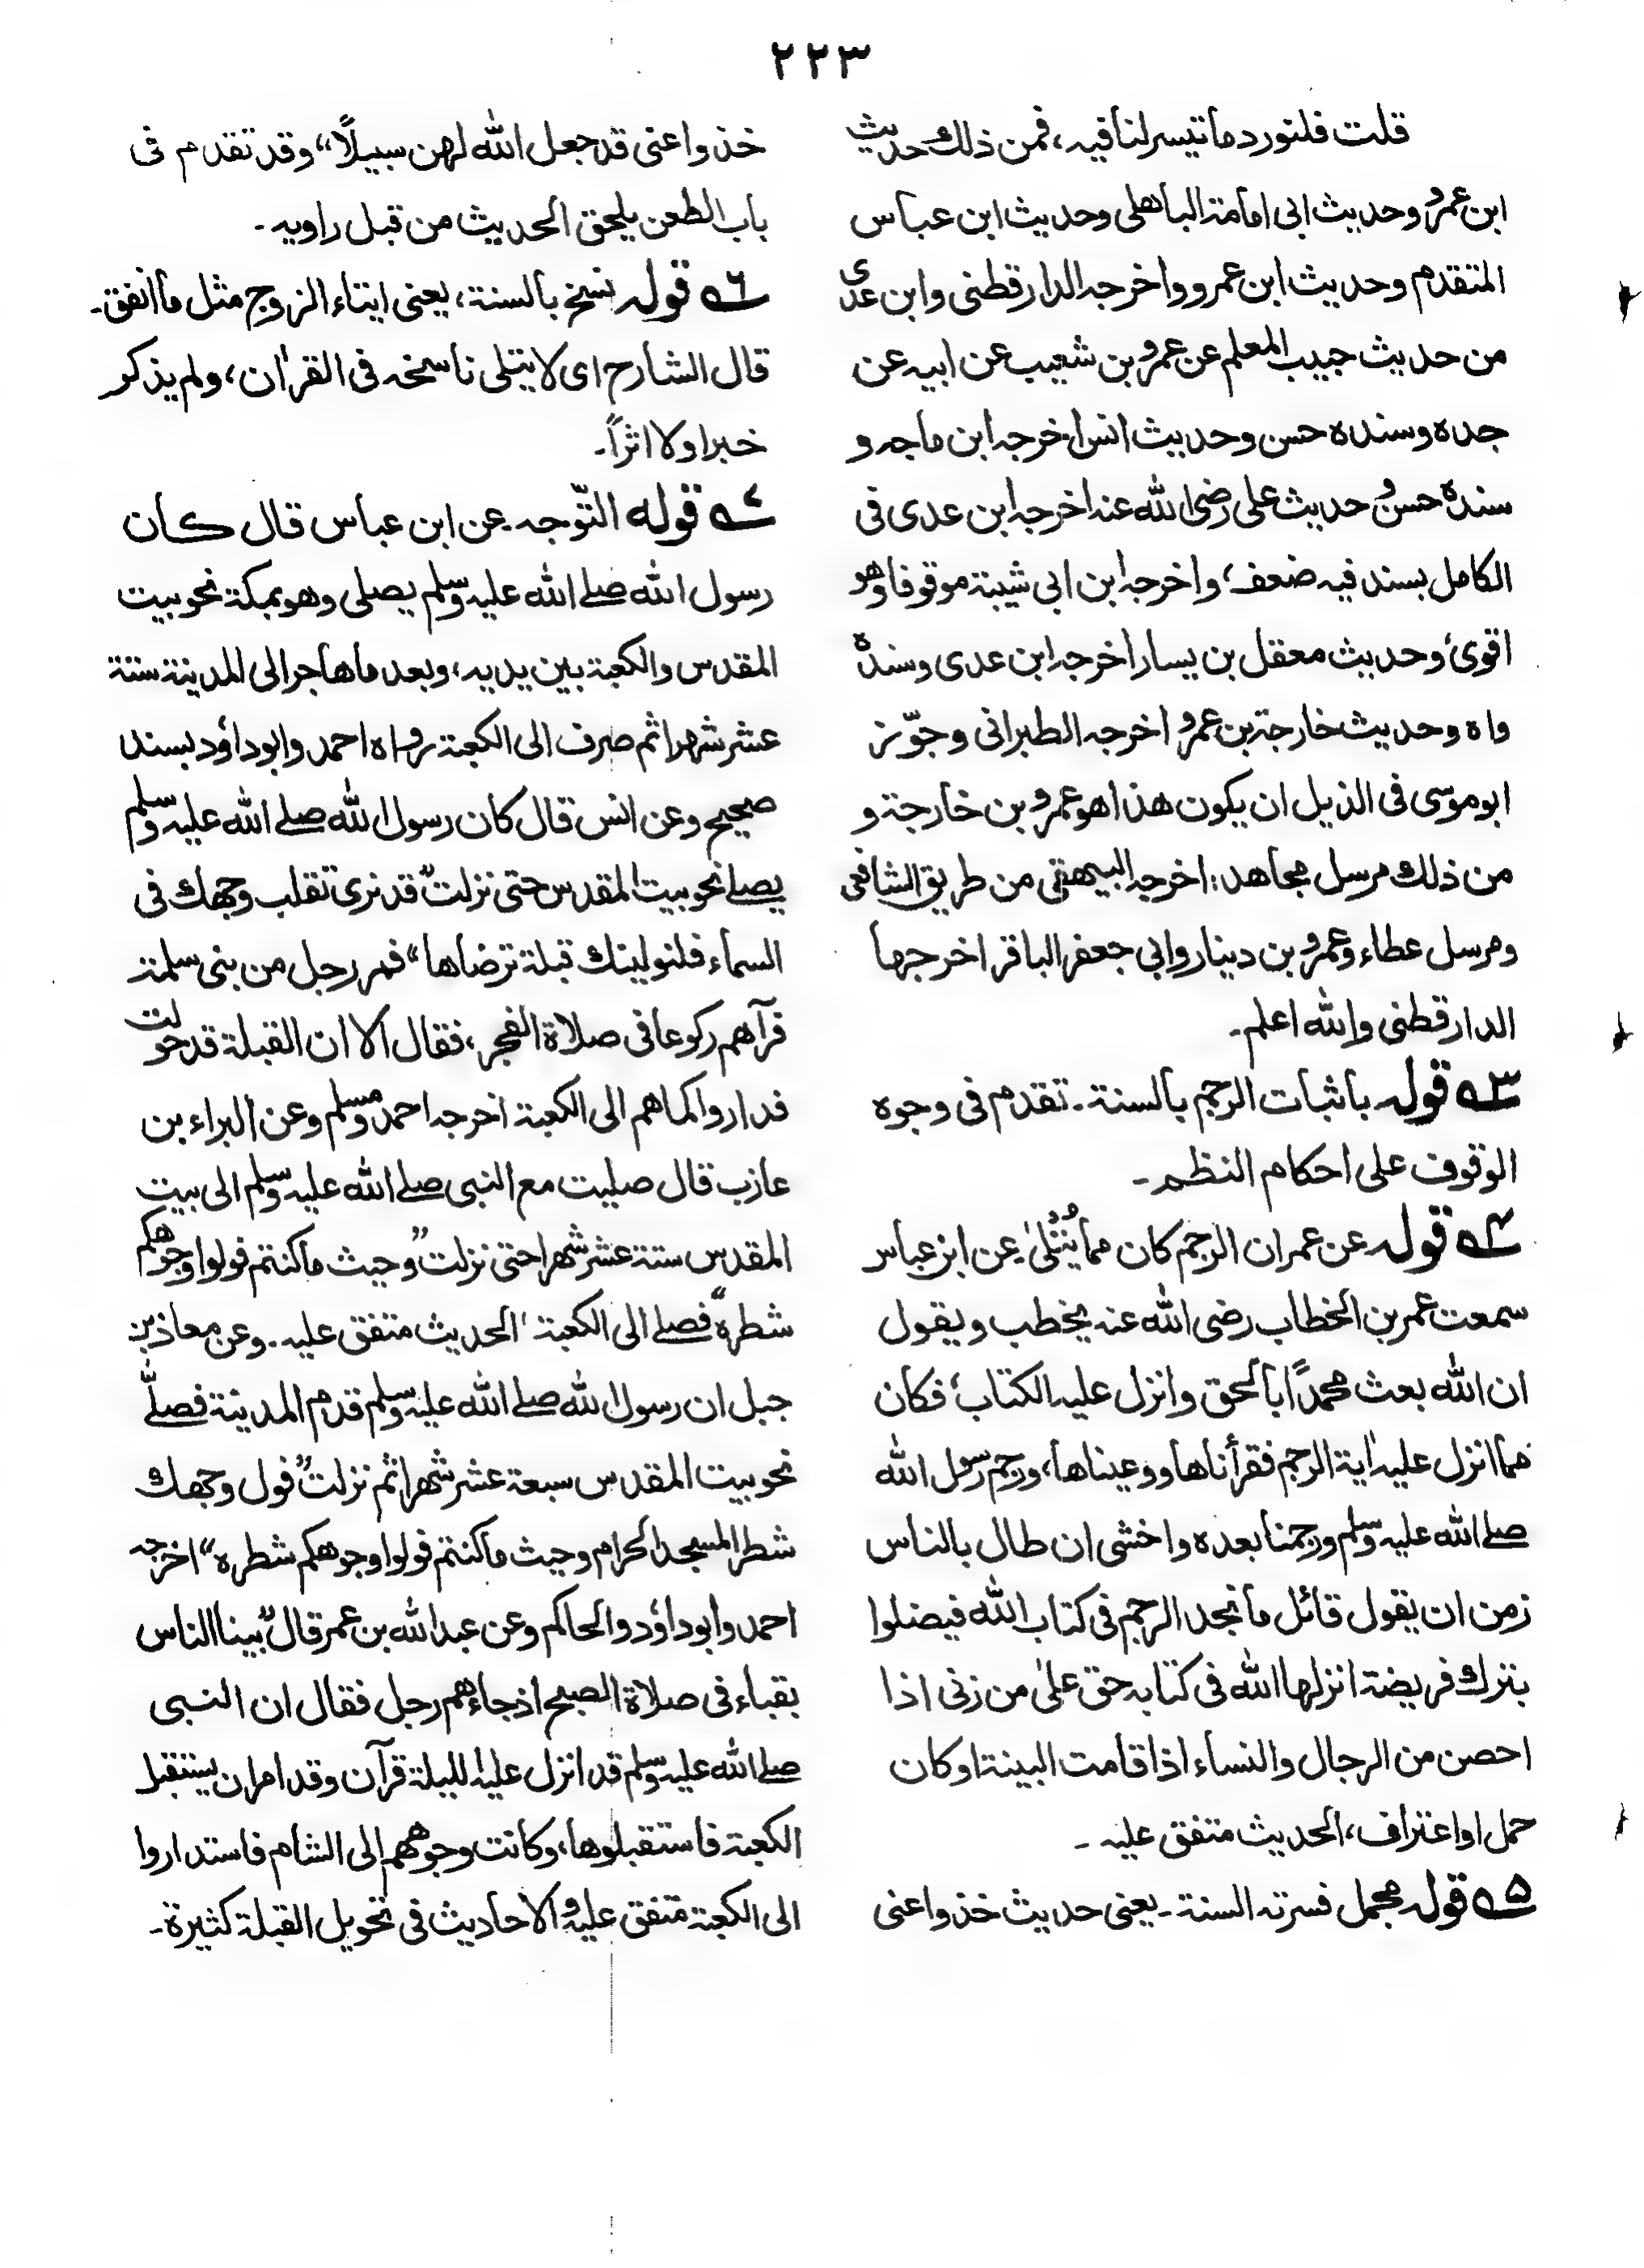 ٢٢٣
قلت فلنورد ما تيسر لنا فيه، فمن ذلك حديث
ابن عمرو وحديث ابى امامة الباهلى وحديث ابن عباس
المتقدم وحديث ابن عمرو واخرجه الدارقطنى وابن عدى
من حديث حبيب المعلم عن عمرو بن شعيب عن ابيه عن
جده وسنده حسن وحديث انس اخرجه ابن ماجه و
سنده حسن و حديث على رضى الله عنه اخرجه ابن عدى فى
الكامل بسند فيه ضعف، واخرجه ابن ابى شيبة موقوفا وهو
اقوى، وحديث معقل بن يسار اخرجه ابن عدى وسنده
واه وحديث خارجة بن عمرو اخرجه الطبرانى وجوّز
ابو موسى فى الذيل ان يكون هذا هو عمرو بن خارجة و
من ذلك مرسل مجاهد: اخرجه البيهقى من طريق الشافعى
ومرسل عطاء وعمرو بن دينار وابى جعفر الباقر اخرجها
الدارقطنى والله اعلم۔
٣ قوله باثبات الرجم بالسنة۔ تقدم فى وجوه
الوقوف على احكام النظم۔
٤ قوله عن عمران الرجم كان مما يُتْلىٰ۔ عن ابن عباس
سمعت عمر بن الخطاب رضى الله عنه يخطب ويقول
ان الله بعث محمدًا بالحق وانزل عليه الكتاب، فكان
مما انزل عليه اٰية الرجم فقرأناها ووعيناها، ورجم رسول الله
صلے الله عليه وسلم ورجمنا بعده واخشى ان طال بالناس
زمن ان يقول قائل ما نجد الرجم فى كتاب الله فيضلوا
بترك فريضة انزلها الله فى كتابه حق علىٰ من زنى اذا
احصن من الرجال والنساء اذا قامت البينة او كان
حمل او اعتراف، الحديث متفق عليه ۔
٥ قوله مجمل فسرته السنة۔ يعنى حديث خذوا عنى
خذوا عنى قد جعل الله لهن سبيلاً“ وقد تقدم فى
باب الطعن يلحق الحديث من قبل راويه۔
٦ قوله نسخ بالسنة، يعنى ايتاء الزوج مثل ما انفق۔
قال الشارح اى لا يتلى ناسخه فى القراٰن، ولم يذكر
خبرا ولا اثراً۔
٧ قوله التّوجه۔ عن ابن عباس قال كان
رسول الله صلے الله عليه وسلم يصلى وهو بمكة نحو بيت
المقدس والكعبة بين يديه، وبعد ما هاجر الى المدينة ستة
عشر شهرا ثم صرف الى الكعبة رواه احمد وابو داؤد بسند
صحيح وعن انس قال كان رسول الله صلے الله عليه وسلم
يصلے نحو بيت المقدس حتى نزلت ”قد نرى تقلب وجهك فى
السماء فلنولينك قبلة ترضاها“ فمر رجل من بنى سلمة
فرآهم ركوعا فى صلاة الفجر، فقال الا ان القبلة قد حولت
فداروا كما هم الى الكعبة اخرجه احمد ومسلم وعن البراء بن
عازب قال صليت مع النبى صلے الله عليه وسلم الى بيت
المقدس ستة عشر شهرا حتى نزلت ”وحيث ما كنتم فولوا وجوهكم
شطره“ فصلے الى الكعبة، الحديث متفق عليه۔ وعن معاذ بن
جبل ان رسول الله صلے الله عليه وسلم قدم المدينة فصلّے
نحو بيت المقدس سبعة عشر شهرا ثم نزلت ”فول وجهك
شطر المسجد الحرام وحيث ما كنتم فولوا وجوهكم شطره“ اخرجه
احمد وابو داؤد والحاكم وعن عبد الله بن عمر قال ”بينا الناس
بقباء فى صلاة الصبح اذ جاءهم رجل فقال ان النبى
صلے الله عليه وسلم قد انزل عليه الليلة قرآن وقد امر ان يستقبل
الكعبة فاستقبلوها، وكانت وجوههم الى الشام فاستداروا
الى الكعبة متفق عليه والاحاديث فى تحويل القبلة كثيرة۔